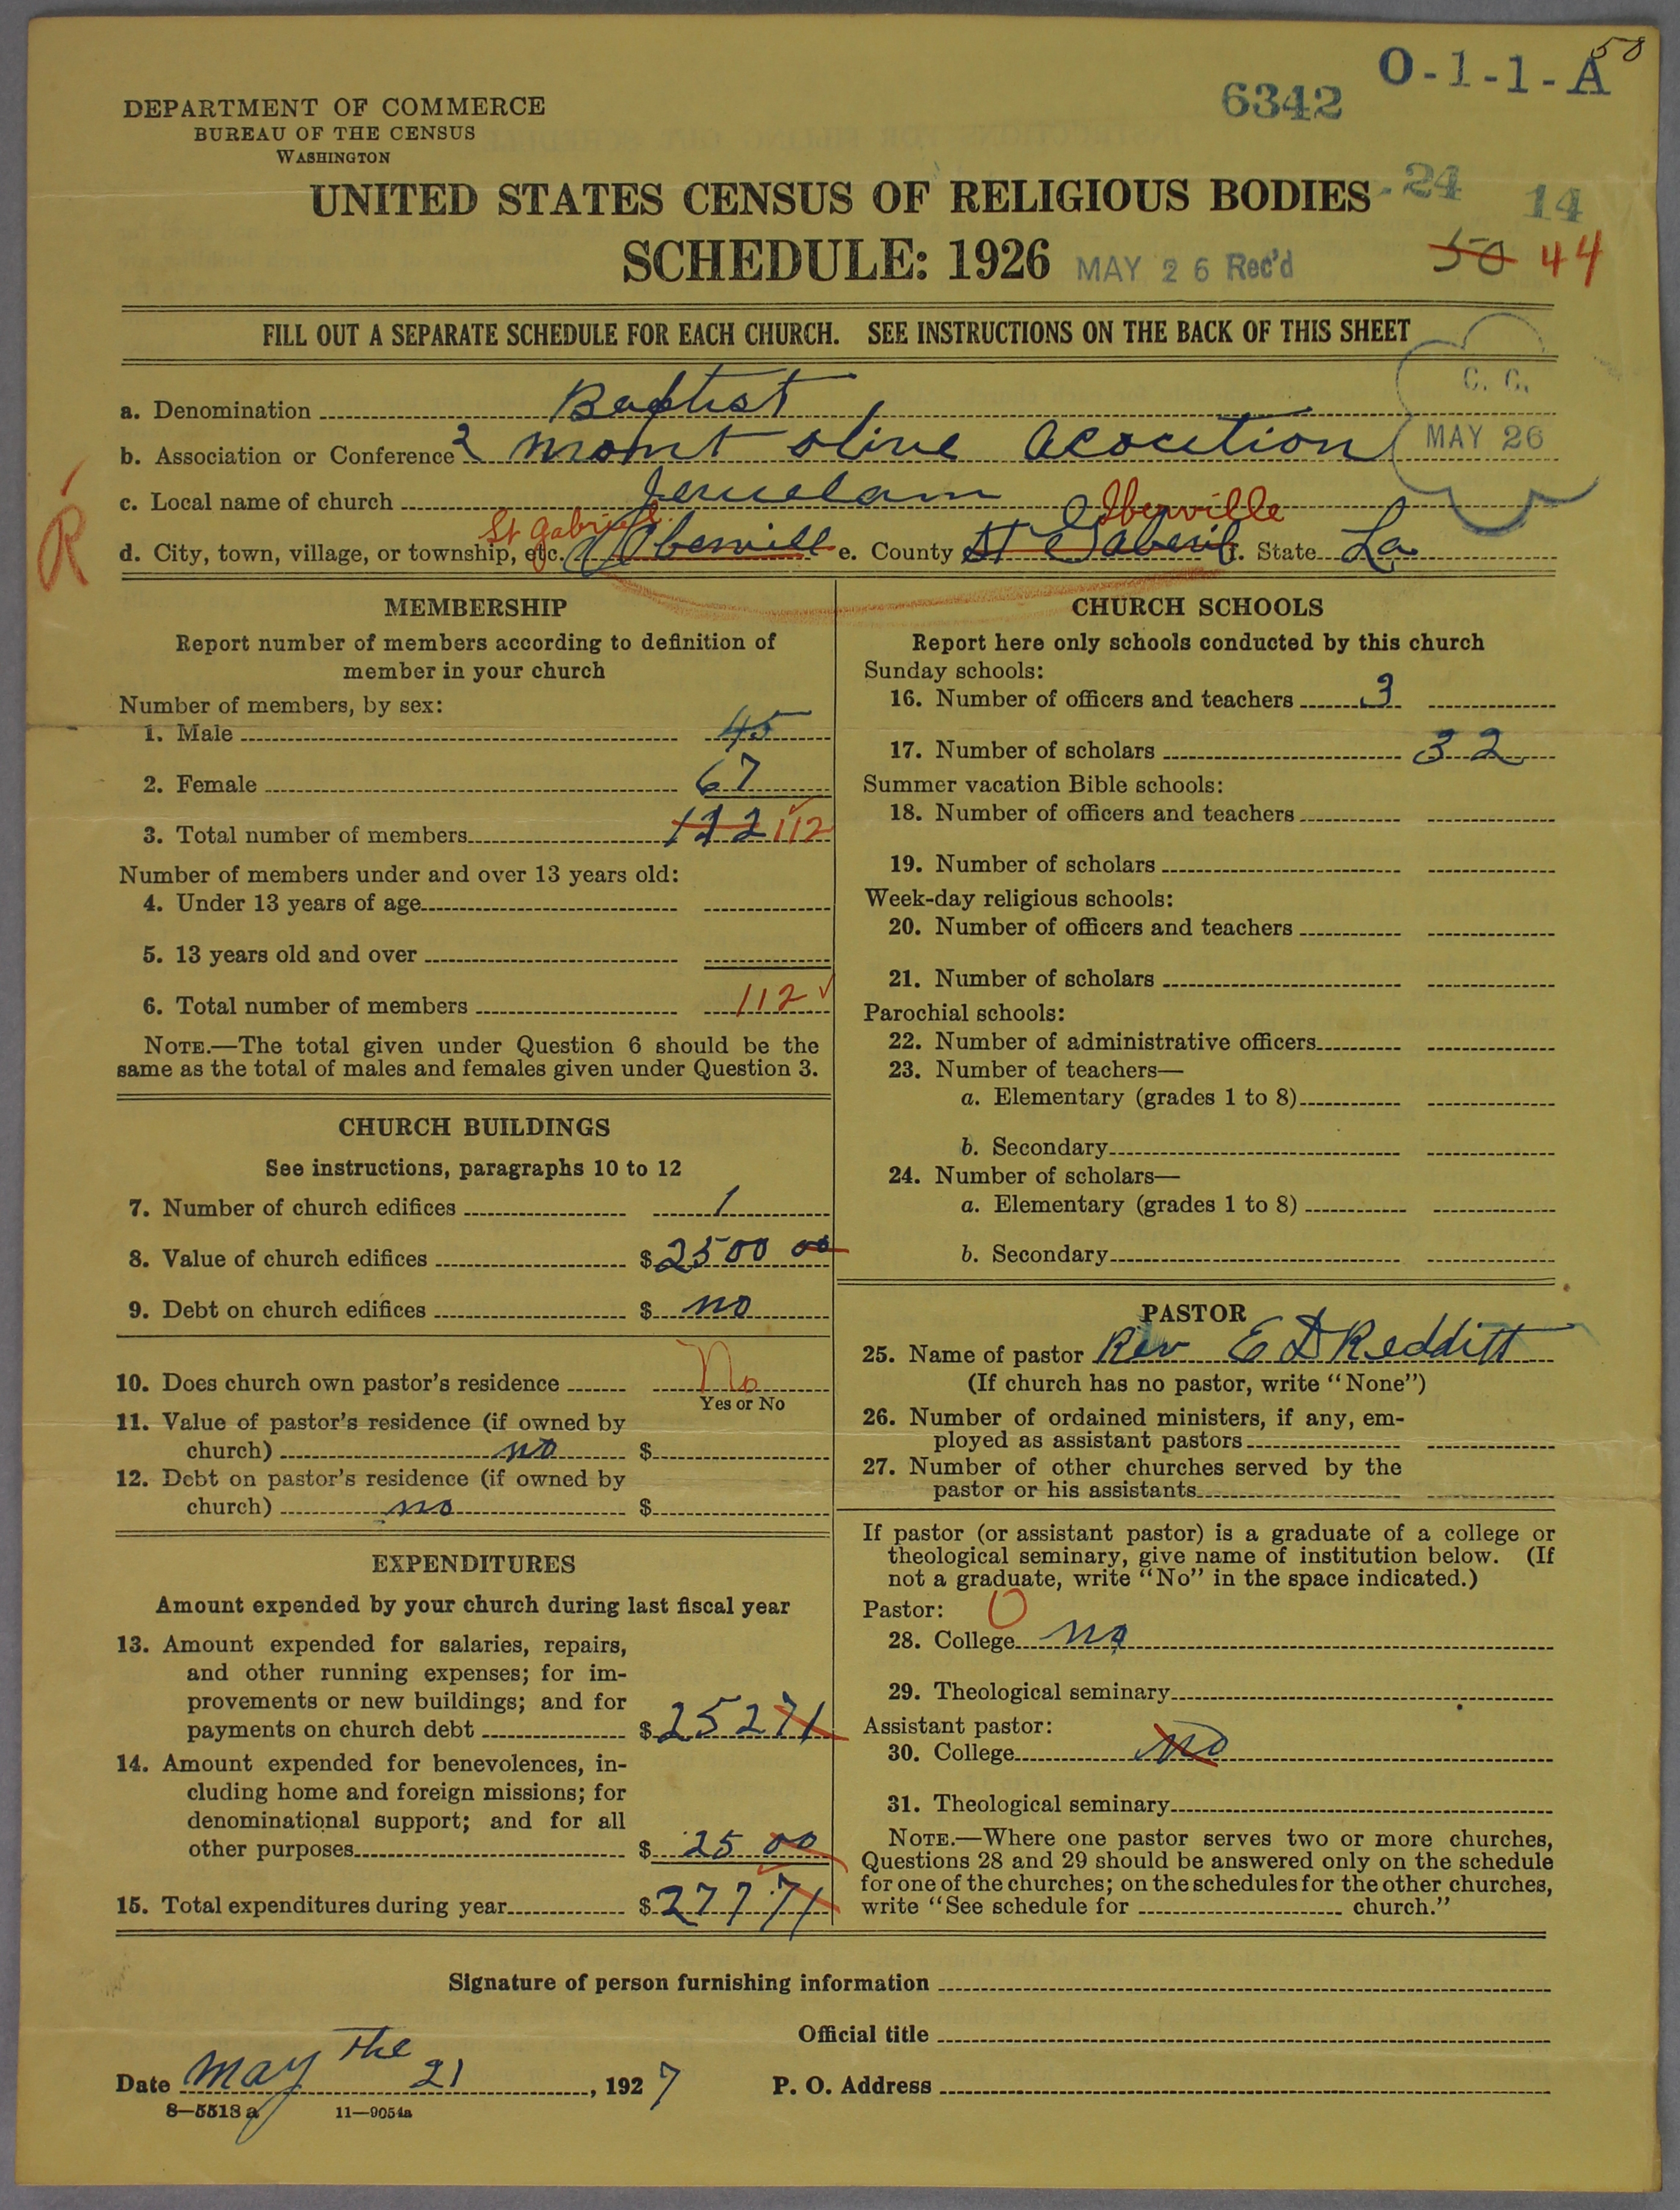 58
O-1-1-A
6342
DEPARTMENT OF COMMERCE
BUREAU OF THE CENSUS
WASHINGTON
UNITED STATES CENSUS OF RELIGIOUS BODIES
- 24 14
SCHEDULE: 1926 MAY 26 Rec'd
50 44
FILL OUT A SEPARATE SCHEDULE FOR EACH CHURCH. SEE INSTRUCTIONS ON THE BACK OF THIS SHEET
C. C.
MAY 26
a. Denomination Baptist
b. Association or Conference 2 mont olive acocition
c. Local name of church Jeruelam
R
St Gabriel Iberville
d. City, town, village, or township, etc. Iberville e. County St Gaberil f. State La
MEMBERSHIP
Report number of members according to definition of
member in your church
Number of members, by sex:
1. Male 45
2. Female 67
3. Total number of members 122 112
Number of members under and over 13 years old:
4. Under 13 years of age
5. 13 years old and over
6. Total number of members 112 ✓
NOTE.—The total given under Question 6 should be the
same as the total of males and females given under Question 3.
CHURCH BUILDINGS
See instructions, paragraphs 10 to 12
7. Number of church edifices 1
8. Value of church edifices $2500 00
9. Debt on church edifices $ no
10. Does church own pastor's residence No
Yes or No
11. Value of pastor's residence (if owned by
church) no $
12. Debt on pastor's residence (if owned by
church) no $
EXPENDITURES
Amount expended by your church during last fiscal year
13. Amount expended for salaries, repairs,
and other running expenses; for im-
provements or new buildings; and for
payments on church debt $252 71
14. Amount expended for benevolences, in-
cluding home and foreign missions; for
denominational support; and for all
other purposes $ 25 00
15. Total expenditures during year $277.71
CHURCH SCHOOLS
Report here only schools conducted by this church
Sunday schools:
16. Number of officers and teachers 3
17. Number of scholars 32
Summer vacation Bible schools:
18. Number of officers and teachers
19. Number of scholars
Week-day religious schools:
20. Number of officers and teachers
21. Number of scholars
Parochial schools:
22. Number of administrative officers
23. Number of teachers—
a. Elementary (grades 1 to 8)
b. Secondary
24. Number of scholars—
a. Elementary (grades 1 to 8)
b. Secondary
PASTOR
25. Name of pastor Rev E D Redditt
(If church has no pastor, write "None")
26. Number of ordained ministers, if any, em-
ployed as assistant pastors
27. Number of other churches served by the
pastor or his assistants
If pastor (or assistant pastor) is a graduate of a college or
theological seminary, give name of institution below. (If
not a graduate, write "No" in the space indicated.)
Pastor: O
28. College no
29. Theological seminary
Assistant pastor:
30. College no
31. Theological seminary
NOTE.—Where one pastor serves two or more churches,
Questions 28 and 29 should be answered only on the schedule
for one of the churches; on the schedules for the other churches,
write "See schedule for church."
Signature of person furnishing information
Official title
Date may the 21, 1927 P. O. Address
8—5518 a 11—9054a